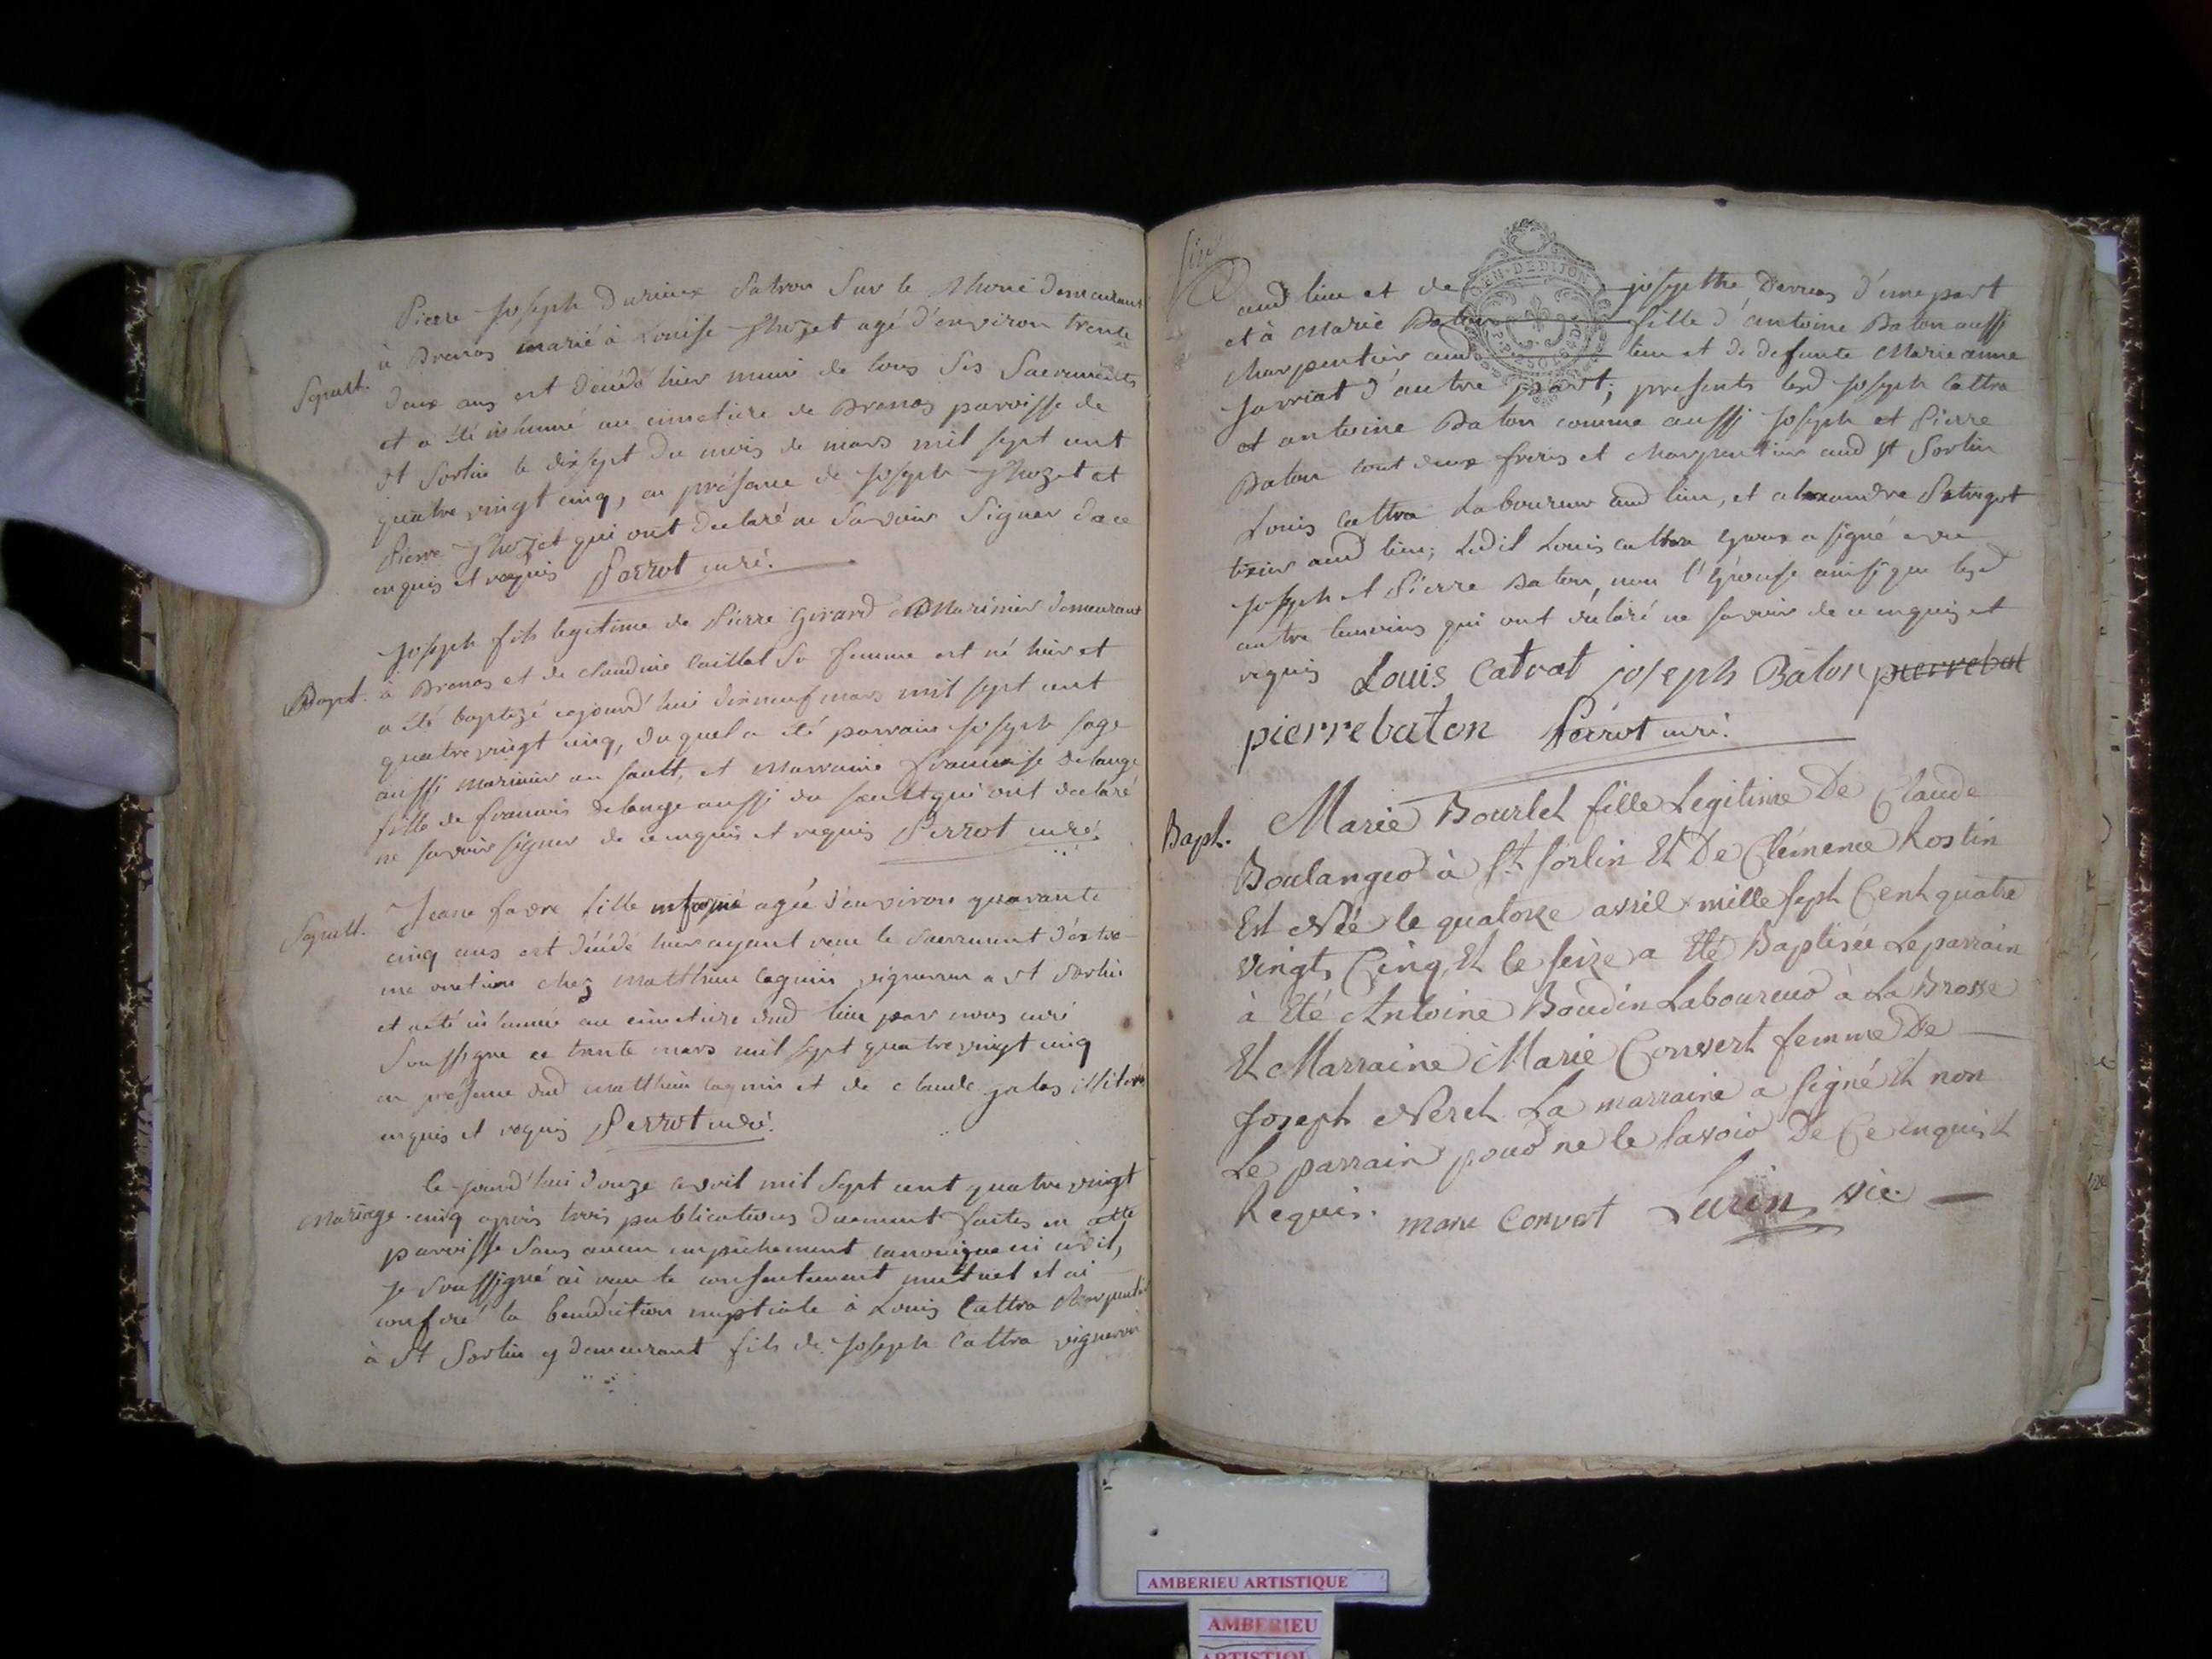 Pierre Joseph Durieux Patron sur le Rhone demeurant
Sepult. à Brenas marié à Louise Thozet agé d'environ trente
deux ans est décédé hier muni de tous ses Sacrements
et a été inhumé au cimetiere de Brenas paroisse de
St Sorlin le dixsept du mois de mars mil sept cent
quatre vingt cinq, en présence de Joseph Thozet et
Pierre Thozet qui ont declaré ne savoir signer de ce
enquis et requis Perrot curé.
Joseph fils legitime de Pierre Girard Marinier demeurant
Bapt. à Brenas et de claudine Caillat Sa femme est né hier et
a été baptizé aujourd'hui dixneuf mars mil sept cent
quatre vingt cinq, duquel a été parrain Joseph Sage
aussi marinier au sault, et Marraine francoise delange
fille de francois delange aussi du sault qui ont declaré
ne savoir signer de ce enquis et requis Perrot curé.
Sepult. Jeane favre fille agée d'environ quarante
cinq ans est décédé hier ayant recu le Sacrement d'extre-
me onction chez Matthieu vigneron a St Sorlin
et a été inhumée au cimetiere dud lieu par nous curé
Soussigné ce trente mars mil sept quatre vingt cinq
en présence dud matthieu et de claude
enquis et requis Perrot curé.
ce jourd'hui douze avril mil sept cent quatre vingt
Mariage. cinq après trois publications duement faites en cette
paroisse sans aucun empêchement canonique ni civil,
je soussigné ai recu le consentement mutuel et ai
conferé la benediction nuptiale à Louis Cattra Charpentier
à St Sorlin y demeurant fils de Joseph Cattra vigneron
aud lieu et de josepthe d'une part
et à Marie Baton fille d'antoine Baton aussi
charpentier aud lieu et de defunte Marie anne
Jarriat d'autre part; presents lesd Joseph Cattra
et antoine Baton comme aussi Joseph et Pierre
Baton tout deux freres et charpentier aud St Sorlin
Louis Cattra Laboureur aud lieu, et alexandre
aud lieu; Ledit Louis Cattra Epoux a signé avec
Joseph et Pierre Baton, non l'Epouse ainsi que lesd
autre temoins qui ont déclaré ne savoir de ce enquis et
requis Louis Catrat joseph Bâton pierrebat
pierrebaton Perrot curé.
Bapt. Marie Bourlet fille Legitime De Claude
Boulanger à St. Sorlin Et De Clémence Rostin
Est Née le quatorze avril mille Sept Cent quatre
vingt Cinq, Et le Seize a Eté Baptisée Le parrain
à Eté Antoine Boudin Laboureur à La Brosse
Et Marraine Marie Convert femme De
Joseph Neret La marraine a Signé Et non
Le parrain pour ne le Savoir De Ce Enquis Et
Requis. marie Convert Lurin vic.
AMBERIEU ARTISTIQUE
AMBERIEU
ARTISTIQUE